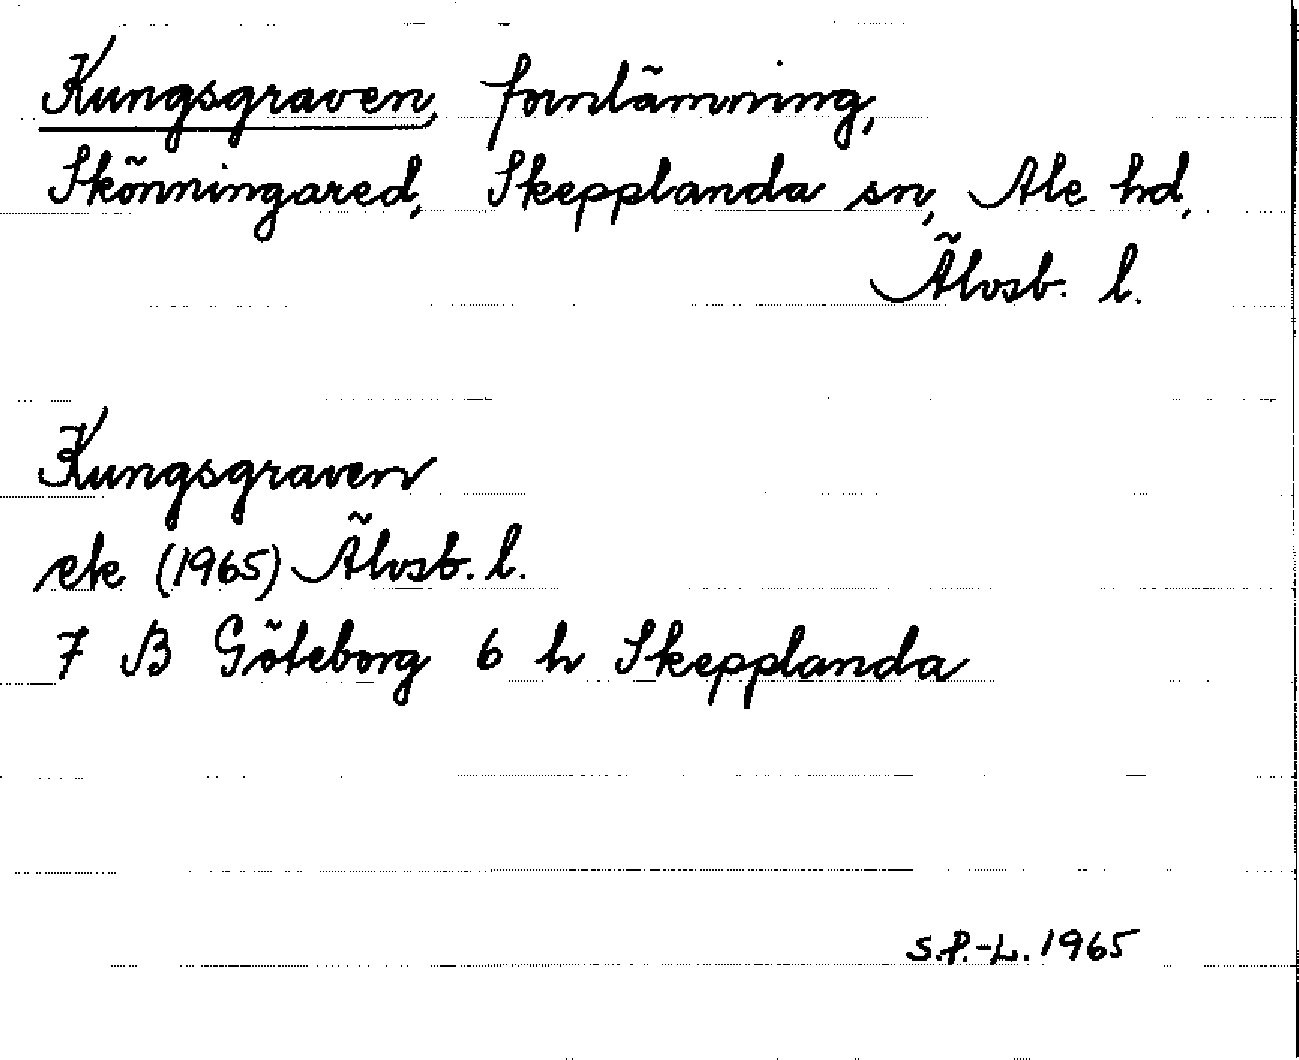 Kungsgraven, fornlämning,
Skönningared, Skepplanda sn, Ale hd,
Älvsb. l.
Kungsgraven
ek (1965) Älvsb. l.
7 B Göteborg 6 h Skepplanda
S.P.-L. 1965